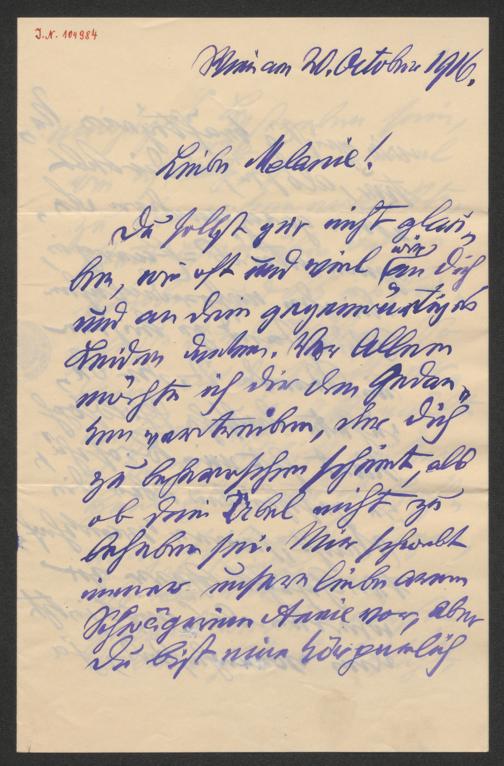 I.N. 104984
Wien am 20. October 1916.
Liebe Melanie!
Du solgst gar nicht glau-
ben, wie oft und viel wir an dich
und an dein gegenwärtiges
Leiden denken. Vor Allem
möchte ich dir den Gedan-
ken vertreiben, der dich
zu beherrschen scheint, als
ob dein Übel nicht zu
beheben sei. Mir schwebt
immer unsere liebe arme
Schwägerinn Annie vor, aber
du bist eine körperlich